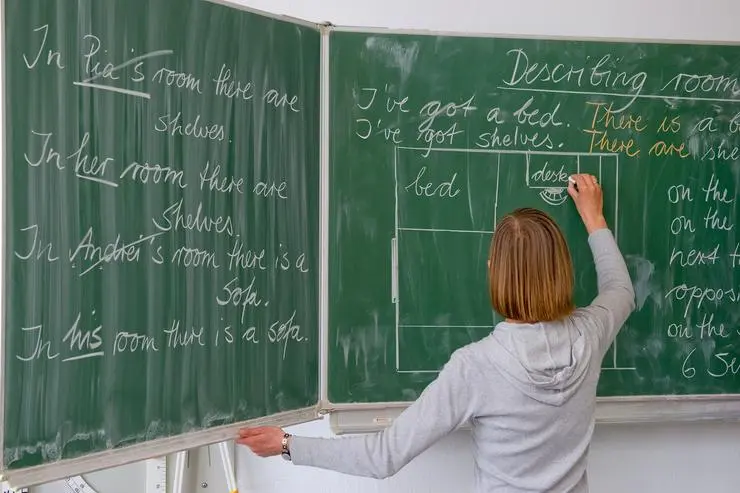 In Pia's room there are
shelves.
In her room there are
shelves.
In Andrei's room there is a
Sofa.
In his room there is a sofa.
Describing room
I've got a bed. There is a b
I've got shelves. There are she
bed
desk
on the
on the
next t
opposi
on the
6 Se